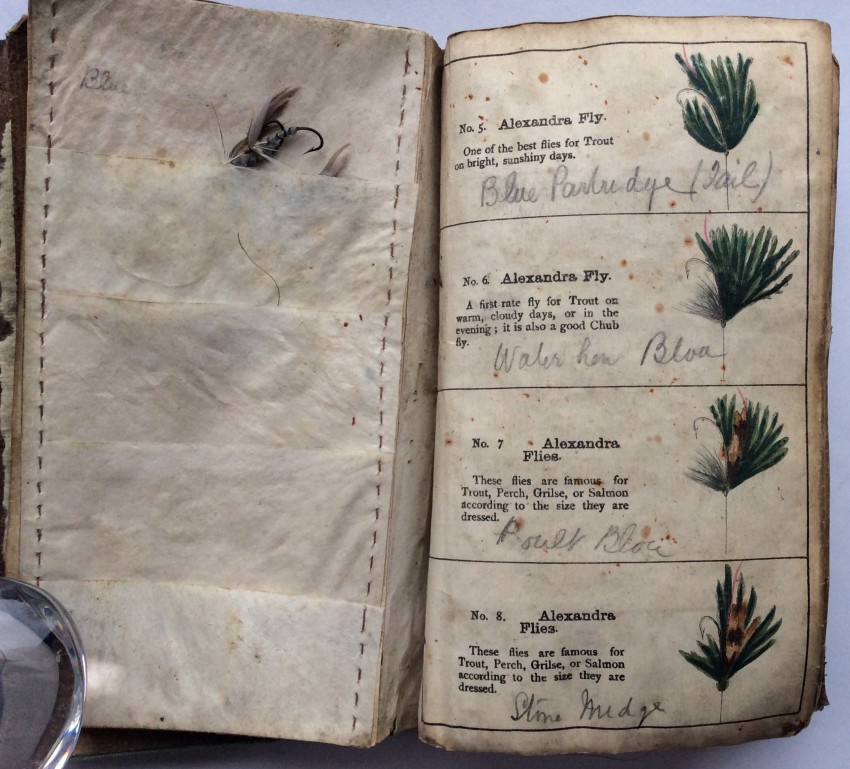 Blue
No. 5. Alexandra Fly.
One of the best flies for Trout
on bright, sunshiny days.
Blue Partridge (Tail)
No. 6. Alexandra Fly.
A first-rate fly for Trout on
warm, cloudy days, or in the
evening; it is also a good Chub
fly.
Water hen Bloa
No. 7 Alexandra
Flies.
These flies are famous for
Trout, Perch, Grilse, or Salmon
according to the size they are
dressed.
Poult Bloa
No. 8. Alexandra
Flies.
These flies are famous for
Trout, Perch, Grilse, or Salmon
according to the size they are
dressed.
Stone Midge